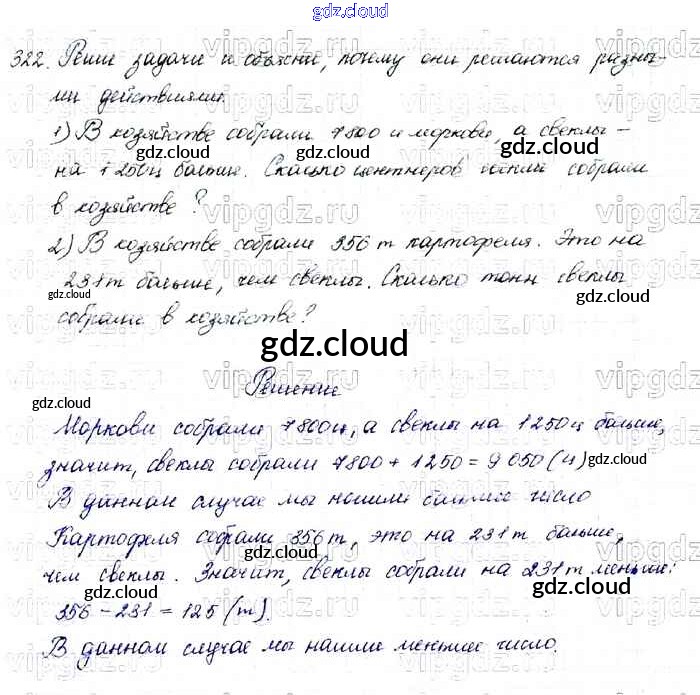 gdz.cloud
322. Реши задачи и объясни, почему они решаются разны-
ми действиями.
1) В хозяйстве собрали 7800 ц моркови, а свеклы –
на 1250ц больше. Сколько центнеров свеклы собрали
в хозяйстве?
2) В хозяйстве собрали 356 т картофеля. Это на
231 т больше, чем свеклы. Сколько тонн свеклы
собрали в хозяйстве?
gdz.cloud
Решение
Моркови собрали 7800ц, а свеклы на 1250 ц больше,
значит, свеклы собрали 7800 + 1250 = 9 050 (ц)
В данном случае мы нашли большее число
Картофеля собрали 356 т, это на 231 т больше,
чем свеклы. Значит, свеклы собрали на 231 т меньше:
356 – 231 = 125 (т).
В данном случае мы нашли меньшее число.